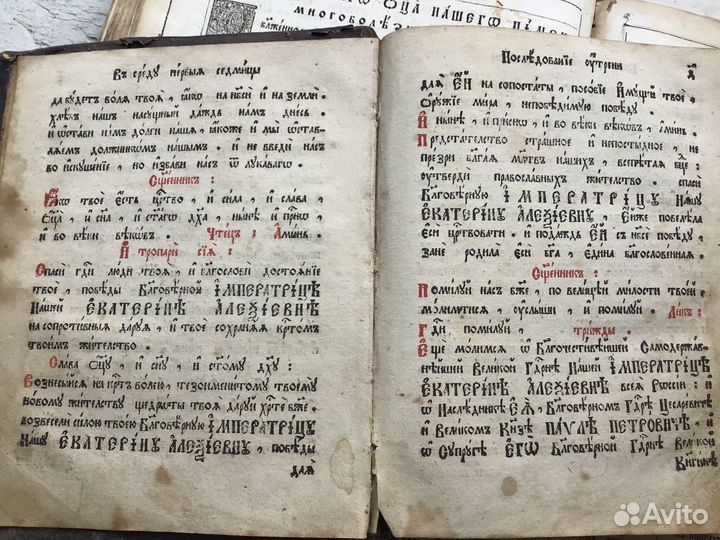 Ѿ Оца нашегѡ
многоболѣз
Въ среду первыѧ седмицы
да будетъ волѧ твоѧ, ѩкѡ на нб҃си и на земли.
хлѣбъ нашъ насущный даждь намъ днесь.
и ѡстави нам долги нашѧ, ѩкоже и мы ѡстав-
лѧемъ должникомъ нашымъ. и не введи насъ
во искушенїе, но избави насъ ѿ лукавагѡ.
Сщ҃енникъ:
Ѩкѡ твое есть црⷭ҇тво, и сила, и слава,
оц҃а, и сн҃а, и ст҃агѡ дх҃а, нынѣ и прⷭ҇нѡ,
и во вѣки вѣкѡвъ. Чтецъ: Аминь.
И тропари сїѧ:
Спаси гдⷭ҇и люди твоѧ, и благослови достоѧнїе
твое, побѣды благовѣрной ІМПЕРАТРІЦѢ
нашей ЕКАТЕРІНѢ АЛЕѮІЕВНѢ
на сопротивныѧ даруѧ, и твое сохранѧѧ крⷭ҇томъ
твоимъ жительство.
Слава оц҃у, и сн҃у, и ст҃ому дх҃у:
Вознесыйсѧ на крⷭ҇тъ волею, тезоименитому твоему
новому жительству щедрѡты твоѧ даруй хрⷭ҇те бж҃е.
возвесели силою твоею благовѣрную ІМПЕРАТРІЦУ
нашу ЕКАТЕРІНУ АЛЕѮІЕВНУ, побѣды
даѧ
Послѣдованїе оутрени
даѧ ЕЙ на сопостаты, пособїе имущей твое
оружїе мира, непобѣдимую побѣду.
И нынѣ, и приснѡ, и во вѣки вѣкѡвъ, аминь.
Предстательство страшное и непостыдное, не
презри благаѧ мл҃твъ нашихъ, всепѣтаѧ бц҃е:
оутверди православныхъ жительство. спаси
благовѣрную ІМПЕРАТРІЦУ нашу
ЕКАТЕРІНУ АЛЕѮІЕВНУ, Еюже повелѣла
еси црⷭ҇твовати. и подаждь ЕЙ съ нб҃се побѣду,
зане родила еси бг҃а, едина благословеннаѧ.
Сщ҃енникъ:
Помилуй насъ бж҃е, по велицѣй милости твоей,
молимтисѧ, оуслыши, и помилуй. Ликъ:
Гдⷭ҇и помилуй, трижды.
Еще молимсѧ ѡ благочестивѣйшей самодержав-
нѣйшей великой гдⷭ҇рнѣ нашей ІМПЕРАТРІЦѢ
ЕКАТЕРІНѢ АЛЕѮІЕВНѢ всеѧ Россїи:
ѡ наслѣдникѣ ЕѦ, благовѣрномъ гдⷭ҇рѣ цесаревичѣ
и великомъ кнѧзѣ ПАУЛѢ ПЕТРОВИЧѢ, и
ѡ супругѣ ЕГѠ благовѣрной гдⷭ҇рнѣ великой
кнѧгинѣ
Avito